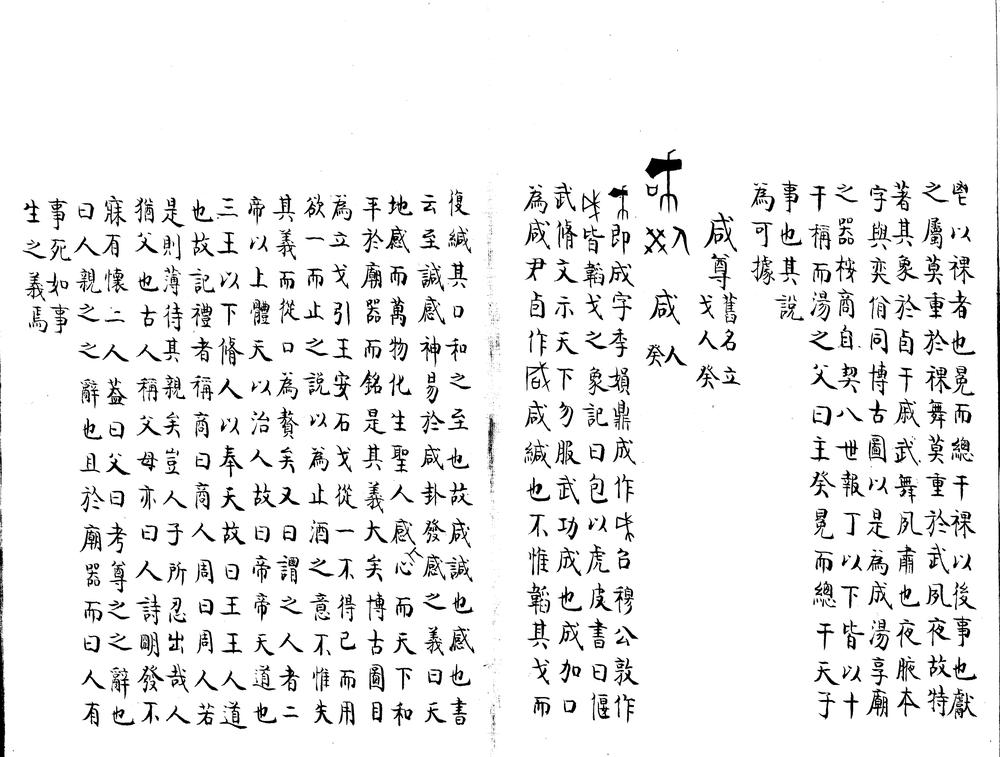 鬯以祼者也冕而總干祼以後事也獻
之屬莫重於祼舞莫重於武夙夜故特
著其象於卣干戚武舞夙肅也夜腋本
字與奕佾同博古圖以是為成湯享廟
之器按商自契八世報丁以下皆以十
干稱而湯之父曰主癸冕而總干天子
事也其說
為可據
咸尊舊名立戈人癸
入
咸
人癸
即成字李損鼎成作 召穆公敦作
皆韜戈之象記曰包以虎皮書曰偃
武脩文示天下勿服武功成也成加口
為咸尹卣作 咸緘也不惟韜其戈而
復緘其口和之至也故咸諴也感也書
云至諴感神易於咸卦發感之義曰天
地感而萬物化生聖人感人心而天下和
平於廟器而銘是其義大矣博古圖目
為立戈引王安石戈從一不得已而用
欲一而止之說以為止酒之意不惟失
其義而從口為贅矣又曰謂之人者二
帝以上體天以治人故曰帝帝天道也
三王以下脩人以奉天故曰王王人道
也故記禮者稱商曰商人周曰周人若
是則薄待其親矣豈人子所忍出哉人
猶父也古人稱父母亦曰人詩明發不
寐有懷二人蓋曰父曰考尊之之辭也
曰人親之之辭也且於廟器而曰人有
事死如事
生之義焉